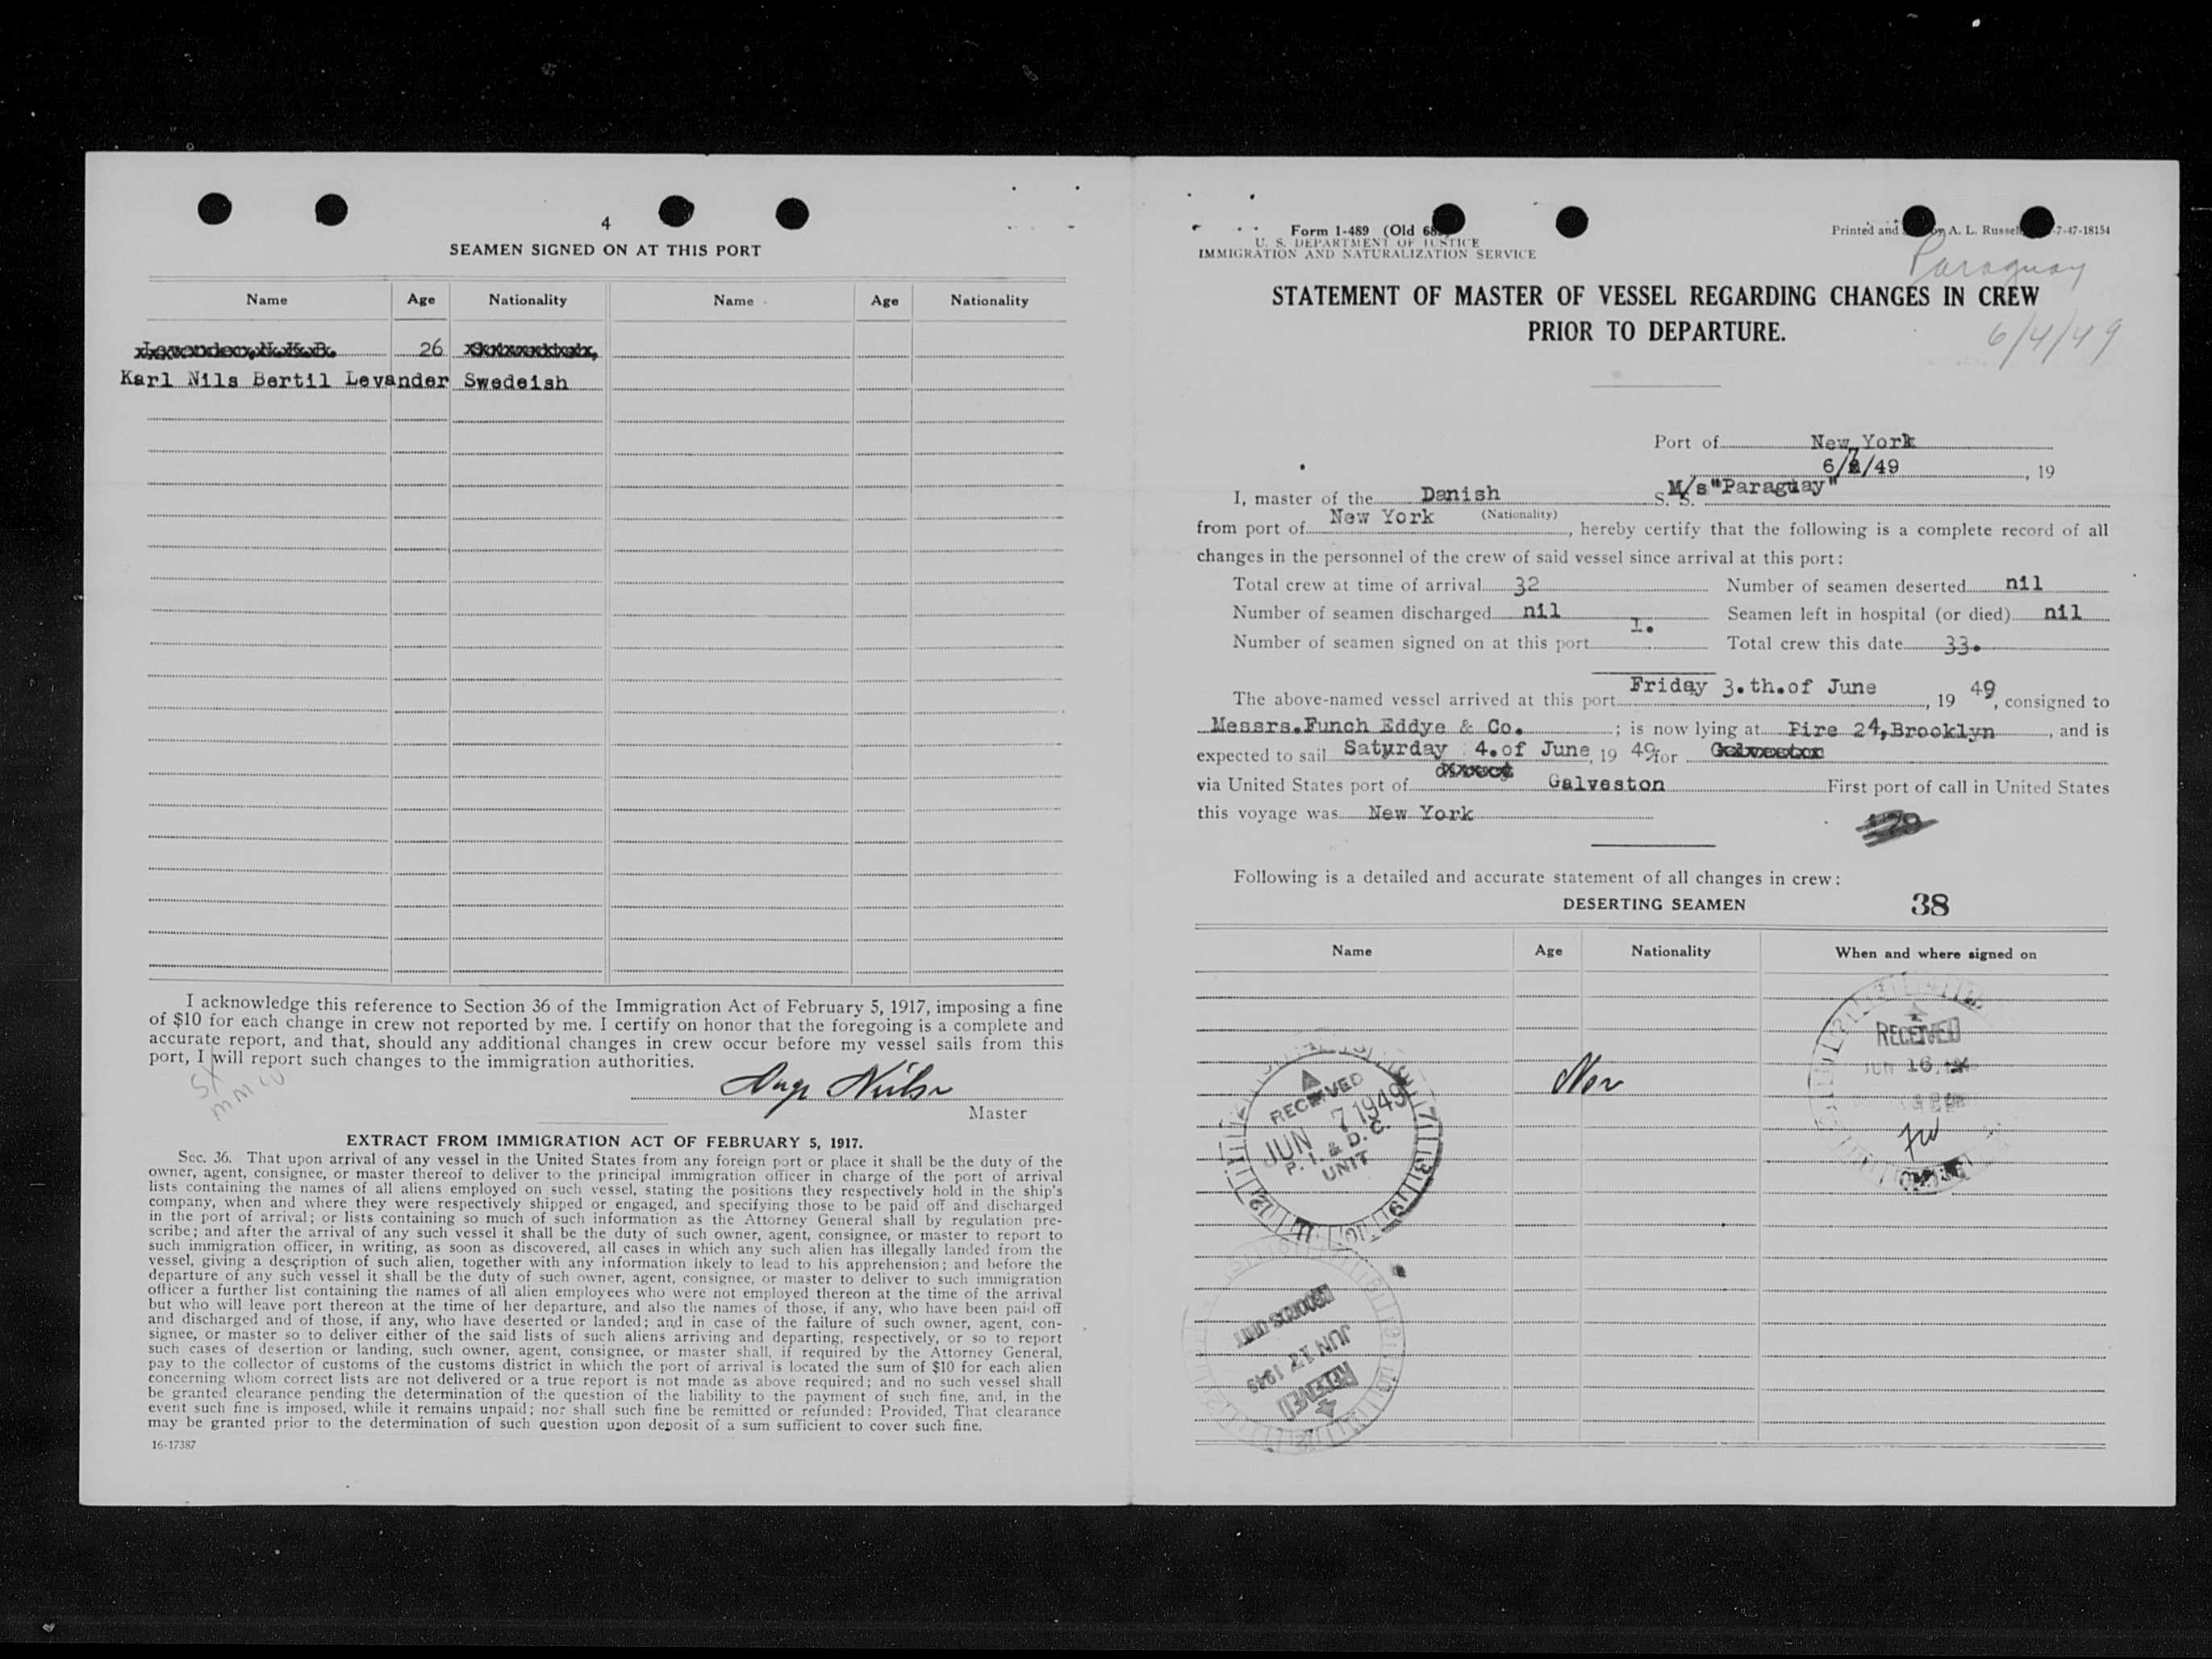 4
SEAMEN SIGNED ON AT THIS PORT
Name Age Nationality Name Age Nationality
26
Karl Nils Bertil Levander Swedeish
I acknowledge this reference to Section 36 of the Immigration Act of February 5, 1917, imposing a fine
of $10 for each change in crew not reported by me. I certify on honor that the foregoing is a complete and
accurate report, and that, should any additional changes in crew occur before my vessel sails from this
port, I will report such changes to the immigration authorities.
Master
EXTRACT FROM IMMIGRATION ACT OF FEBRUARY 5, 1917.
Sec. 36. That upon arrival of any vessel in the United States from any foreign port or place it shall be the duty of the
owner, agent, consignee, or master thereof to deliver to the principal immigration officer in charge of the port of arrival
lists containing the names of all aliens employed on such vessel, stating the positions they respectively hold in the ship's
company, when and where they were respectively shipped or engaged, and specifying those to be paid off and discharged
in the port of arrival; or lists containing so much of such information as the Attorney General shall by regulation pre-
scribe; and after the arrival of any such vessel it shall be the duty of such owner, agent, consignee, or master to report to
such immigration officer, in writing, as soon as discovered, all cases in which any such alien has illegally landed from the
vessel, giving a description of such alien, together with any information likely to lead to his apprehension; and before the
departure of any such vessel it shall be the duty of such owner, agent, consignee, or master to deliver to such immigration
officer a further list containing the names of all alien employees who were not employed thereon at the time of the arrival
but who will leave port thereon at the time of her departure, and also the names of those, if any, who have been paid off
and discharged and of those, if any, who have deserted or landed; and in case of the failure of such owner, agent, con-
signee, or master so to deliver either of the said lists of such aliens arriving and departing, respectively, or so to report
such cases of desertion or landing, such owner, agent, consignee, or master shall, if required by the Attorney General,
pay to the collector of customs of the customs district in which the port of arrival is located the sum of $10 for each alien
concerning whom correct lists are not delivered or a true report is not made as above required; and no such vessel shall
be granted clearance pending the determination of the question of the liability to the payment of such fine, and, in the
event such fine is imposed, while it remains unpaid; nor shall such fine be remitted or refunded: Provided, That clearance
may be granted prior to the determination of such question upon deposit of a sum sufficient to cover such fine.
16-17387
Form 1-489 (Old
U. S. DEPARTMENT OF JUSTICE
IMMIGRATION AND NATURALIZATION SERVICE
Printed and by A. L. Russell -7-47-18154
Paraguay
STATEMENT OF MASTER OF VESSEL REGARDING CHANGES IN CREW
PRIOR TO DEPARTURE.
6/4/49
Port of New York
6/ /49 , 19
I, master of the Danish S. S. M/s"Paraguay"
(Nationality)
from port of New York , hereby certify that the following is a complete record of all
changes in the personnel of the crew of said vessel since arrival at this port:
Total crew at time of arrival 32 Number of seamen deserted nil
Number of seamen discharged nil Seamen left in hospital (or died) nil
Number of seamen signed on at this port I. Total crew this date 33.
The above-named vessel arrived at this port Friday 3.th.of June , 19 49 , consigned to
Messrs.Funch Eddye & Co. ; is now lying at Pire 24,Brooklyn , and is
expected to sail Saturday 4.of June , 19 49 for
via United States port of Galveston First port of call in United States
this voyage was New York
Following is a detailed and accurate statement of all changes in crew:
DESERTING SEAMEN 38
Name Age Nationality When and where signed on
RECEIVED
JUN 16
RECEIVED
JUN 7 1949
P. I. & D. C.
UNIT
RECORDS UNIT
JUN 17 1949
RECEIVED